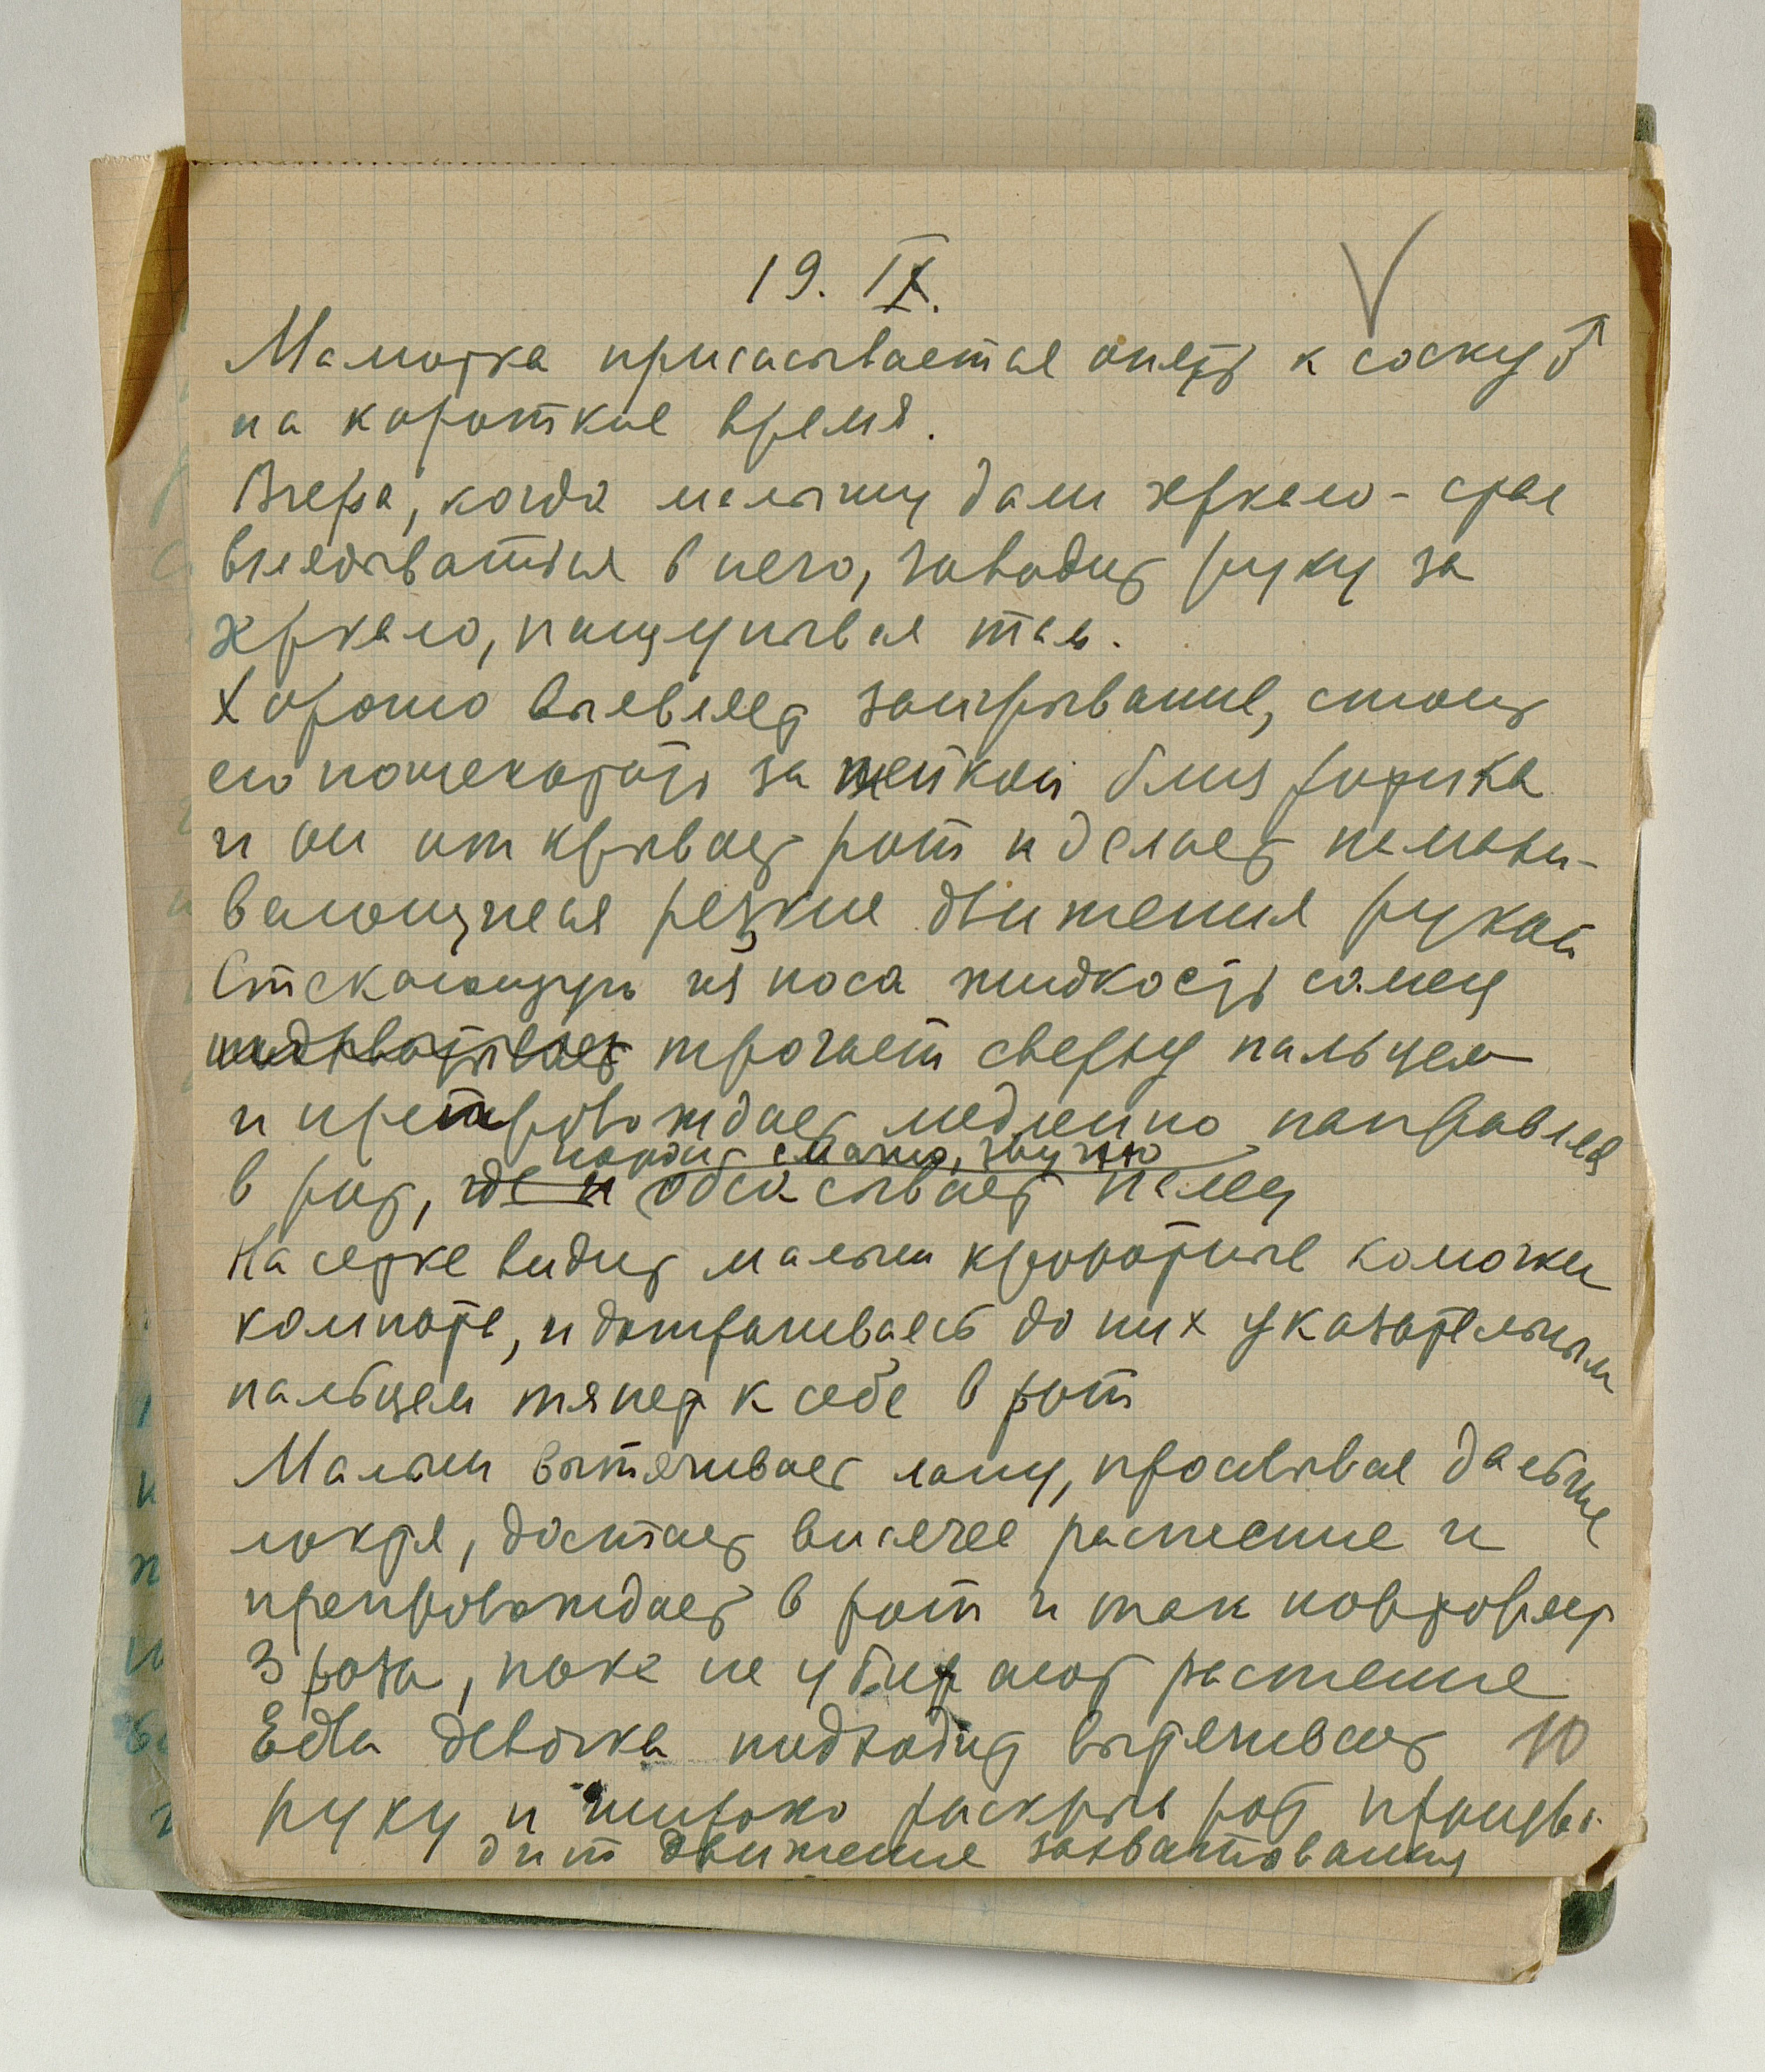 19. IX.
Малютка присасывается опять к соску ♂
на короткое время.
Вчера, когда малышу дали зеркало - стал
вглядываться в него, заводит руку за
зеркало, нащупывая там.
Хорошо выявляет заигрывание, стоит
его пощекотать за шейкой близ ротика
и он открывает рот и делает
резкие движения рукой
Стекающую из носа жидкость самец
подхватывает трогает сверху пальцем
и препровождает медленно направляя
порой смачно, звучно
в рот, где и обсасывает палец
На сетке видит малыш крохотные комочки
компота, и дотрагиваясь до них указательным
пальцем тянет к себе в рот
Малыш вытягивает лапу, просовывая дальше
локтя, достает висячее растение и
препровождает в рот и так повторяет
3 раза, пока не убирают растение
Едва девочка подходит вытягивает 10
руку и широко раскрыв рот произво-
дит движение захватования